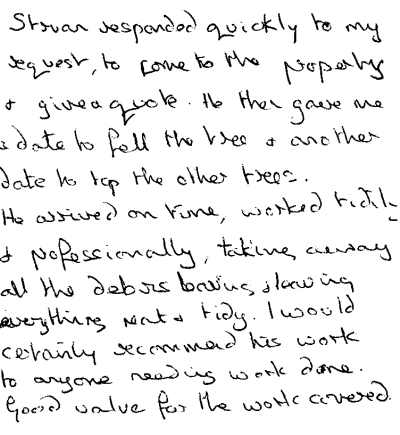 Struan responded quickly to my
request, to come to the property
& give a quote. He then gave me
a date to fell the tree & another
date to top the other trees.
He arrived on time, worked tidily
& professionally, taking away
all the debris leaving
everything neat & tidy. I would
certainly recommend his work
to anyone needing work done.
Good value for the work covered.